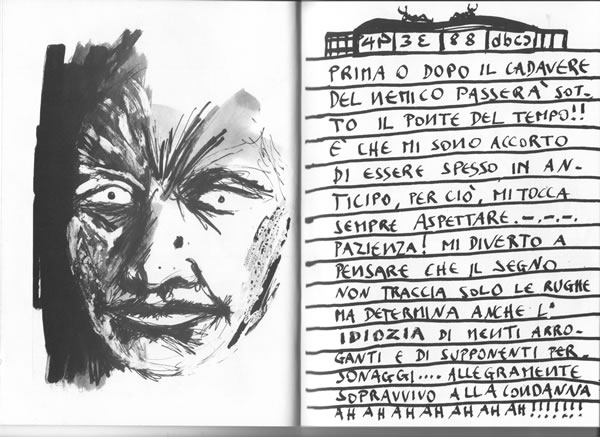 PRIMA O DOPO IL CADAVERE
DEL NEMICO PASSERA' SOT-
TO IL PONTE DEL TEMPO!!
E' CHE MI SONO ACCORTO
DI ESSERE SPESSO IN AN-
TICIPO, PER CIÒ, MI TOCCA
SEMPRE ASPETTARE.-.-.-.
PAZIENZA! MI DIVERTO A
PENSARE CHE IL SEGNO
NON TRACCIA SOLO LE RUGHE
MA DETERMINA ANCHE L'
IDIOZIA DI MENTI ARRO-
GANTI E DI SUPPONENTI PER-
SONAGGI.... ALLEGRAMENTE
SOPRAVVIVO ALLA CONDANNA
AH AH AH AH AH AH AH!!!!!!!